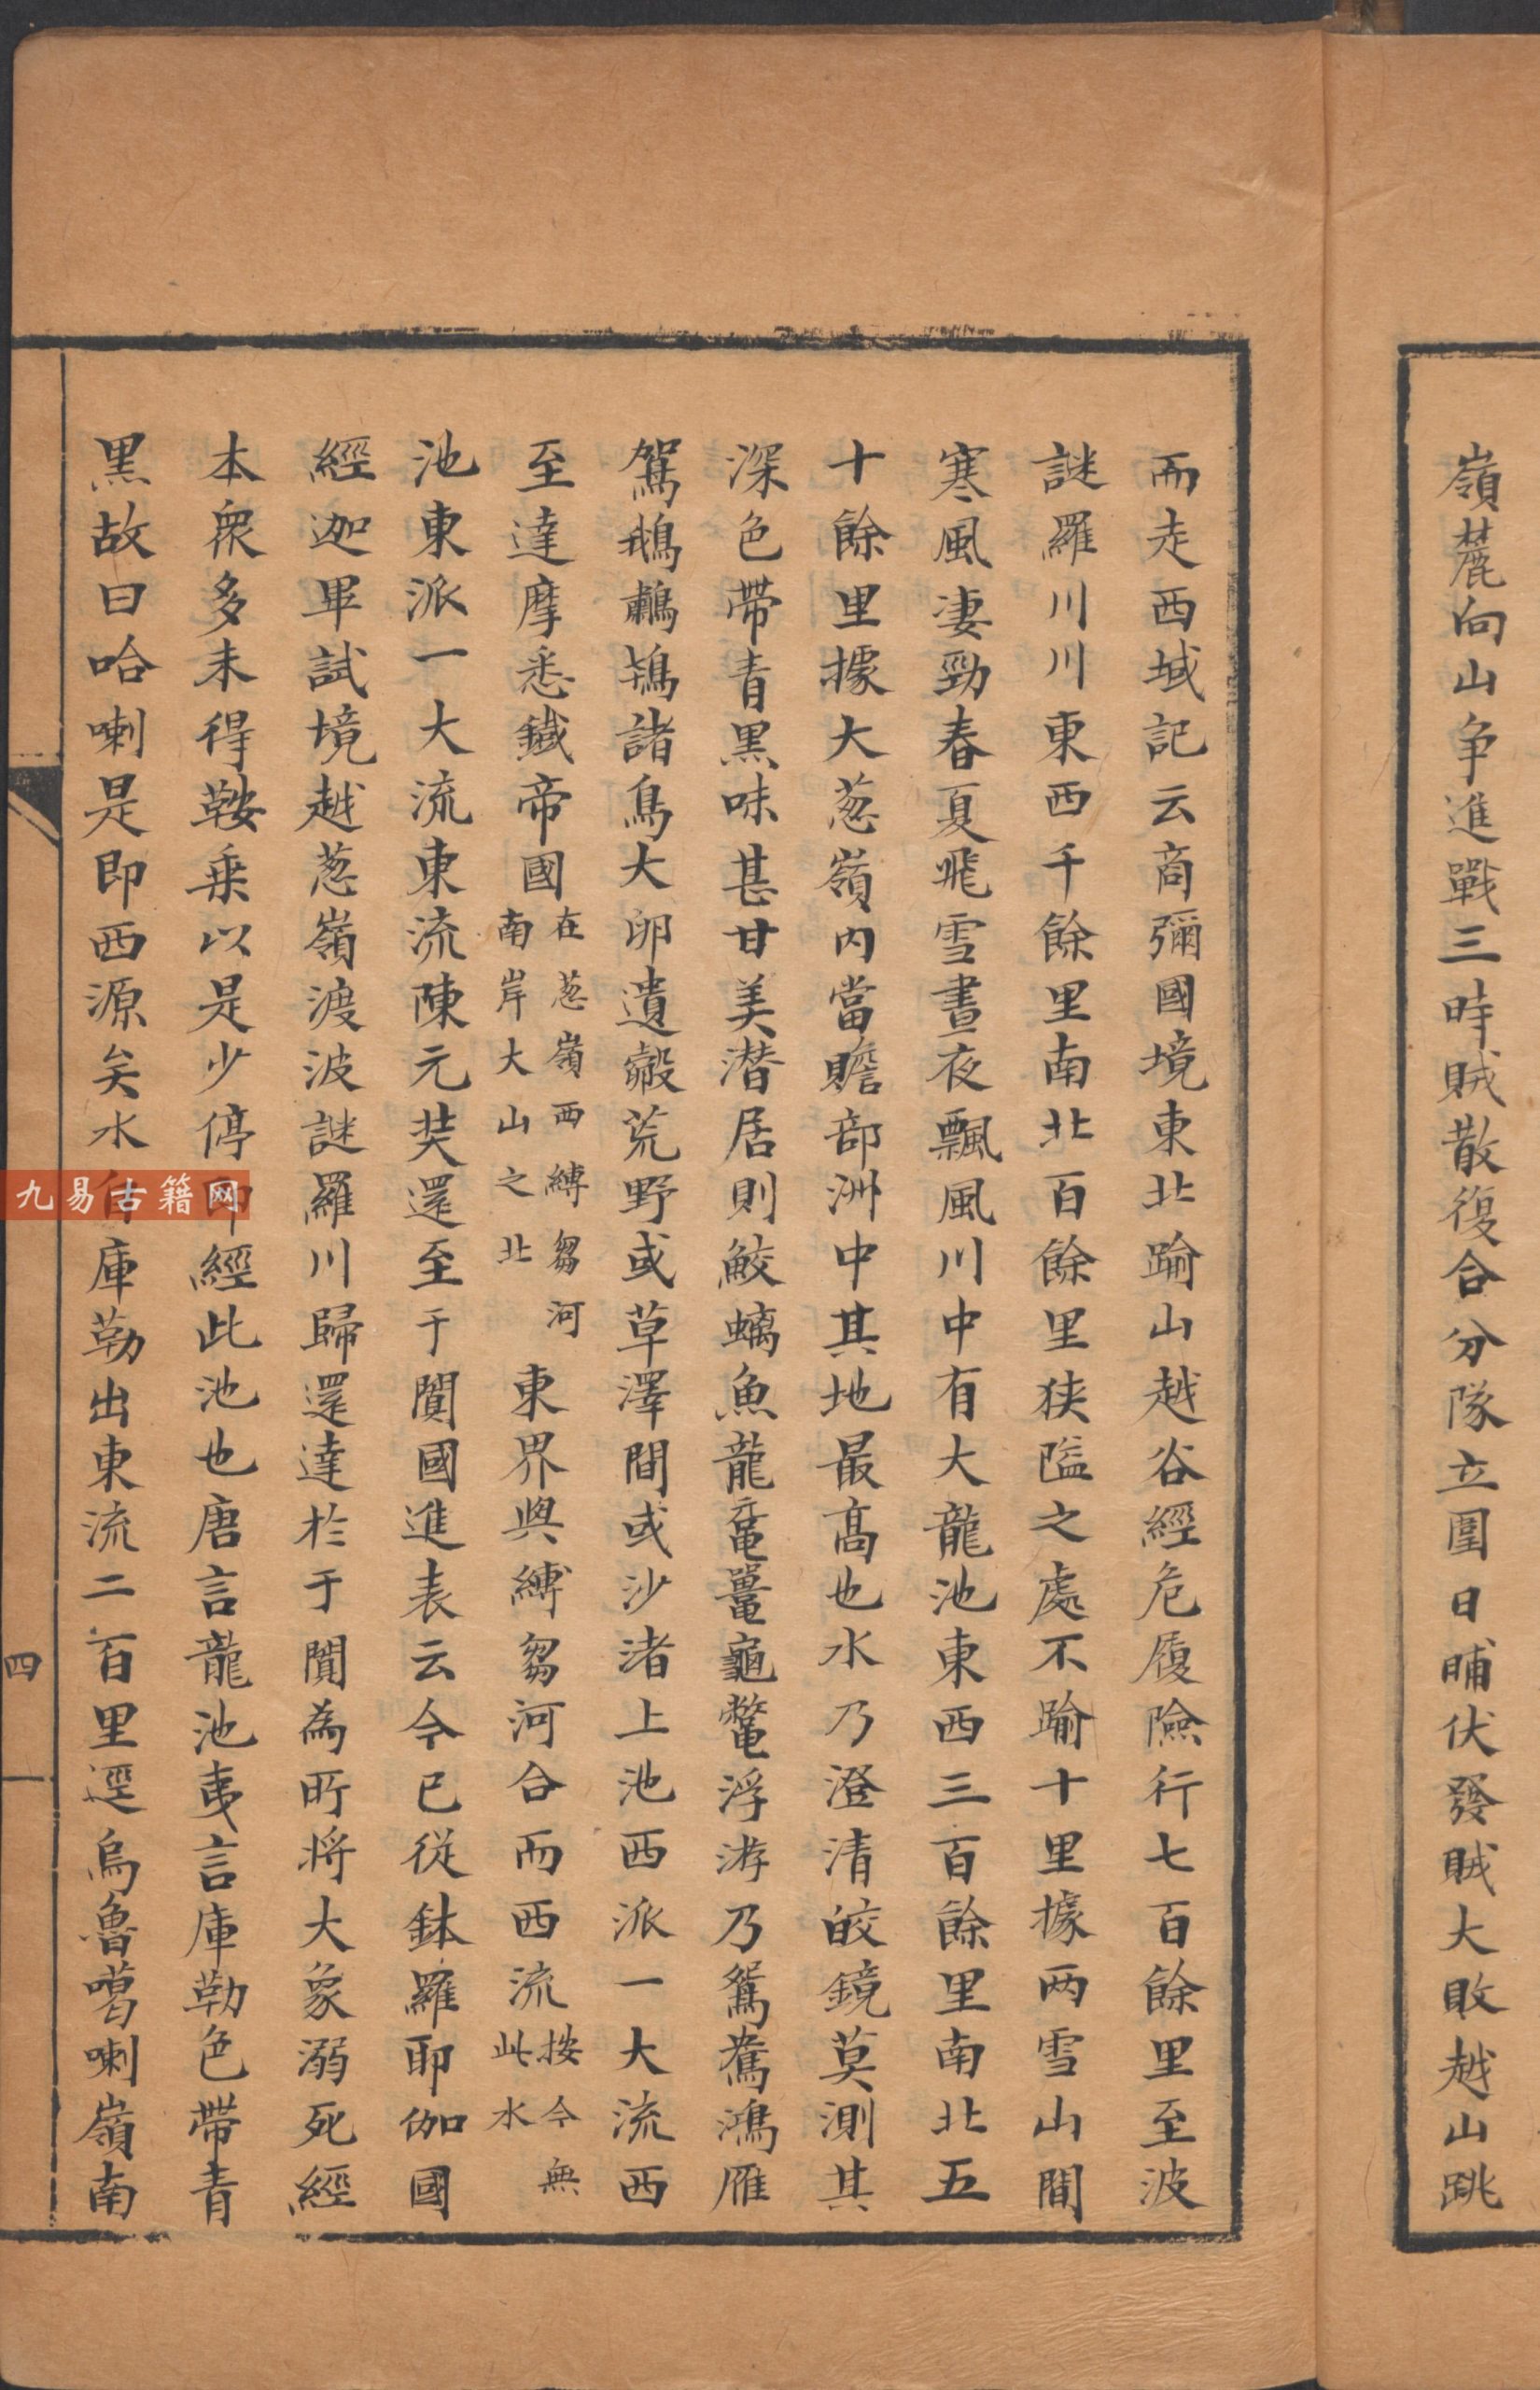 嶺麓向山爭進戰三時賊散復合分隊立圍日晡伏發賊大敗越山跳
而走西域記云商彌國境東北踰山越谷經危履險行七百餘里至波
謎羅川川東西千餘里南北百餘里狹隘之處不踰十里據兩雪山間
寒風凄勁春夏飛雪晝夜飄風川中有大龍池東西三百餘里南北五
十餘里據大葱嶺內當贍部洲中其地最髙也水乃澄清皎鏡莫測其
深色帶青黑味甚甘美潛居則鮫螭魚龍黿鼉龜鼈浮游乃鴛鴦鴻雁
駕鵝鷫鴇諸鳥大卵遺鷇荒野或草澤間或沙渚上池西派一大流西
至達摩悉鐵帝國在葱嶺西縛芻河南岸大山之北東界與縛芻河合而西流按今無此水
池東派一大流東流陳元奘還至于闐國進表云今已從鉢羅耶伽國
經迦畢試境越葱嶺渡波謎羅川歸還達於于闐為所將大象溺死經
本衆多未得鞍乗以是少停即經此池也唐言龍池夷言庫勒色帶青
黑故曰哈喇是即西源矣水自庫勒出東流二百里逕烏魯噶喇嶺南
四
九易古籍网